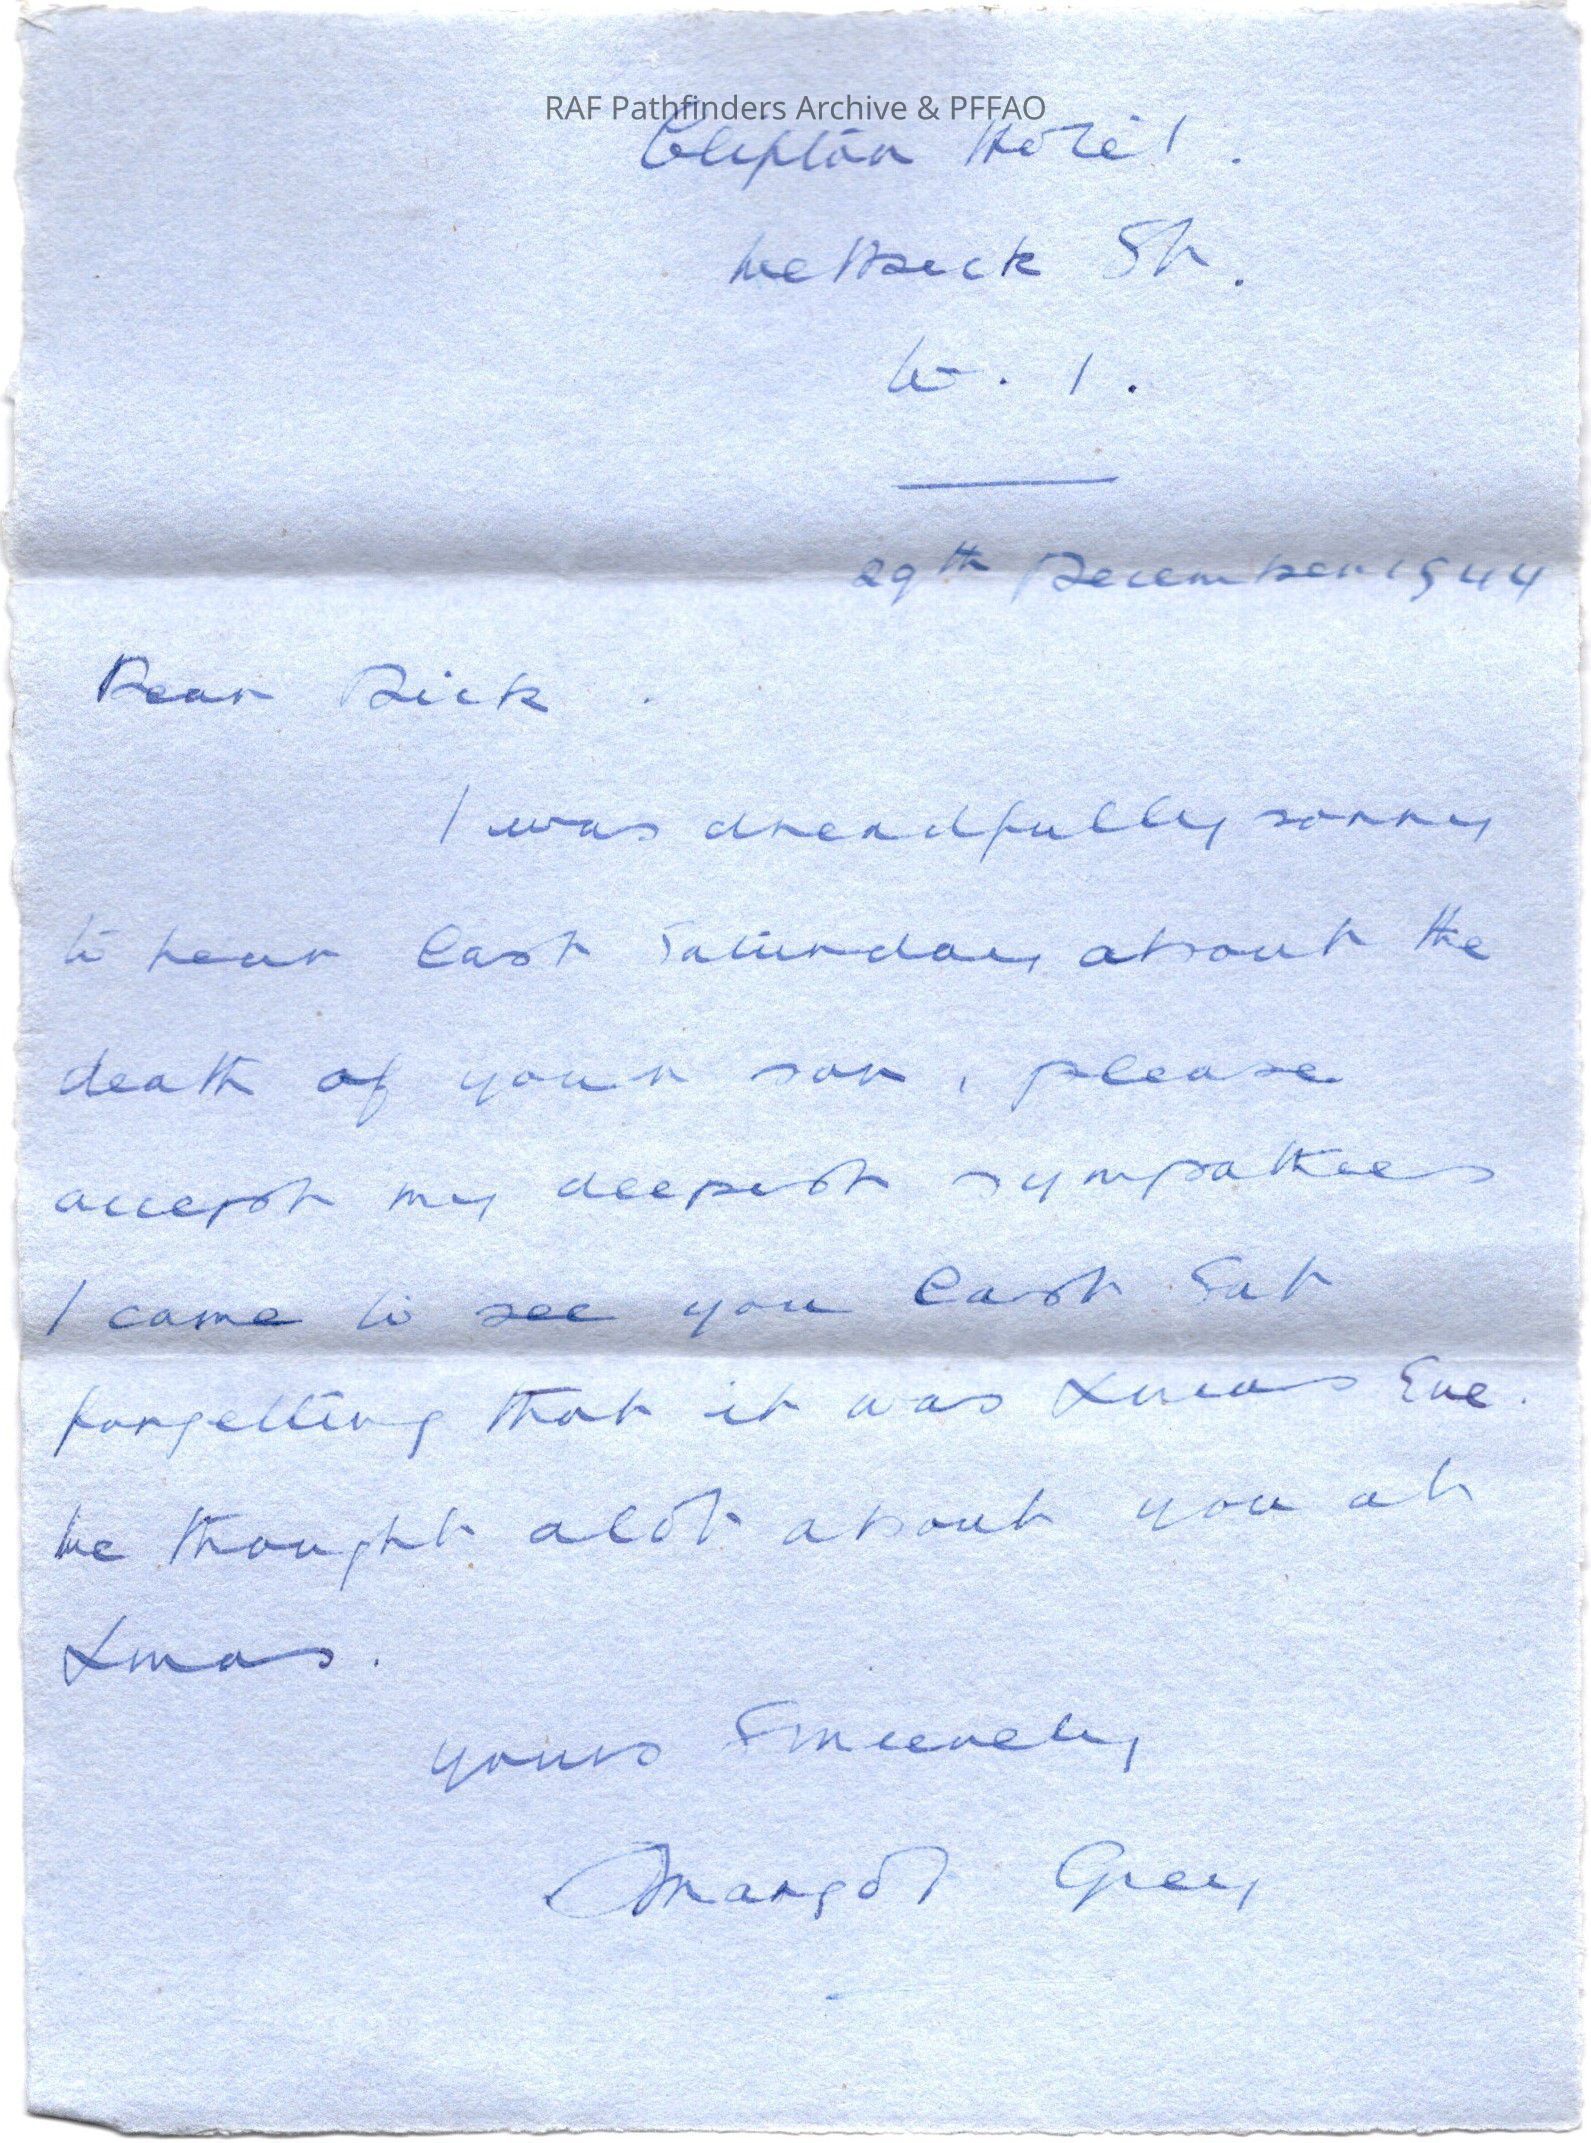 RAF Pathfinders Archive & PFFAO
Clifton Hotel.
Welbeck St.
W. 1.
29th December 1944
Dear Dick.
I was dreadfully sorry
to hear last Saturday about the
death of your son, please
accept my deepest sympathies
I came to see you last Sat
forgetting that it was Xmas Eve.
We thought alot about you at
Xmas.
Yours Sincerely
Margot Grey